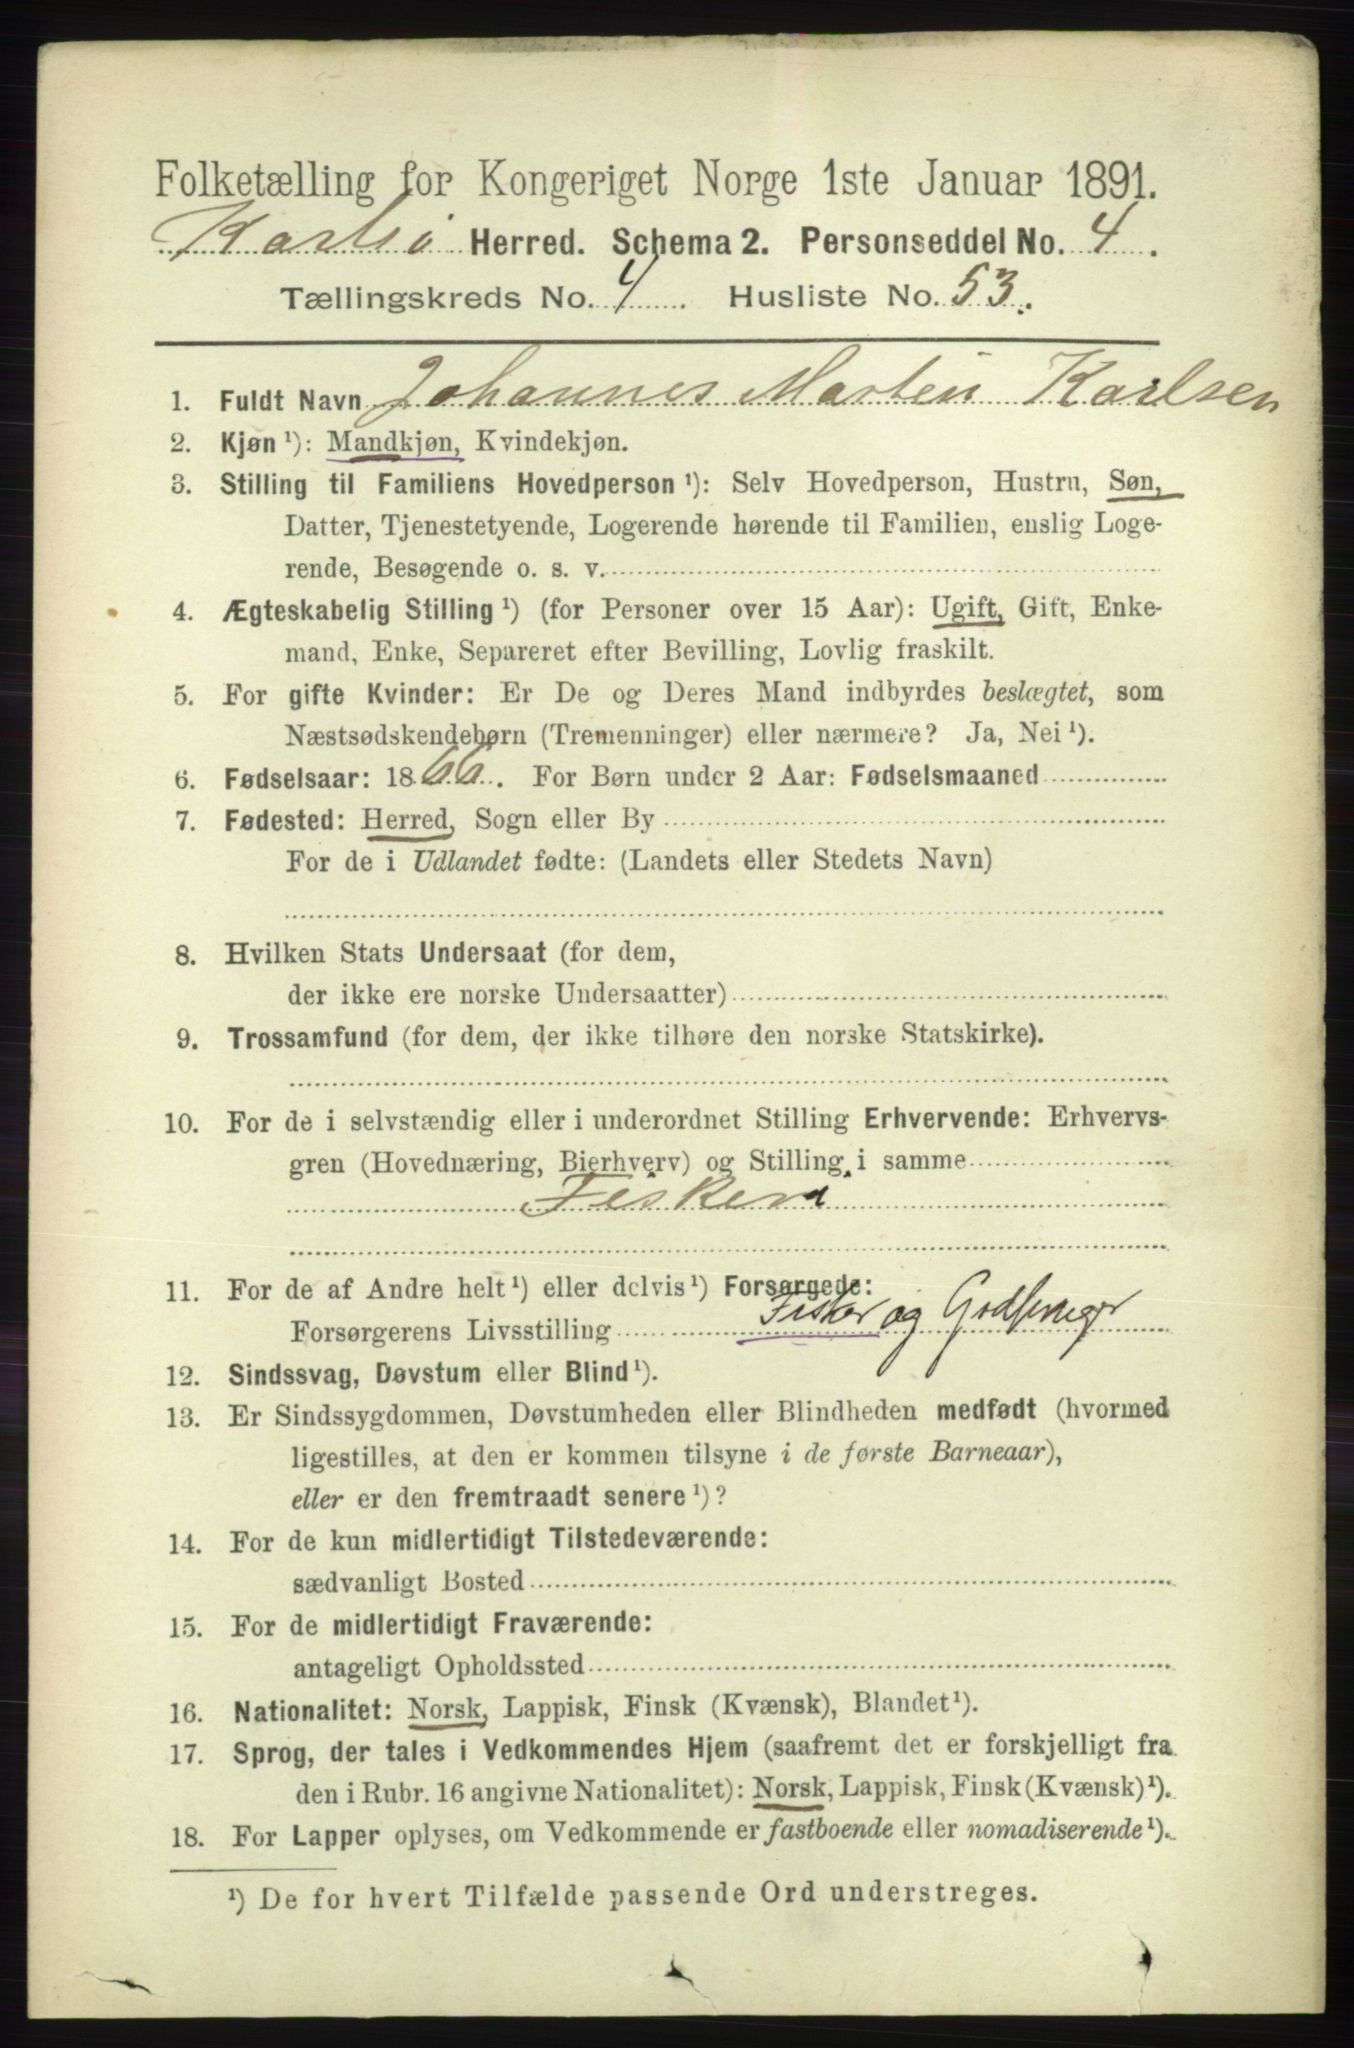 Folketælling for Kongeriget Norge 1ste Januar 1891.
Karlsø Herred. Schema 2. Personseddel No. 4.
Tællingskreds No. 4. Husliste No. 53.
1. Fuldt Navn Johannes Marten Karlsen
2. Kjøn ¹): Mandkjøn, Kvindekjøn.
3. Stilling til Familiens Hovedperson ¹): Selv Hovedperson, Hustru, Søn,
Datter, Tjenestetyende, Logerende hørende til Familien, enslig Loge-
rende, Besøgende o. s. v.
4. Ægteskabelig Stilling ¹) (for Personer over 15 Aar): Ugift, Gift, Enke-
mand, Enke, Separeret efter Bevilling, Lovlig fraskilt.
5. For gifte Kvinder: Er De og Deres Mand indbyrdes beslægtet, som
Næstsødskendebørn (Tremenninger) eller nærmere? Ja, Nei ¹).
6. Fødselsaar: 1866. For Børn under 2 Aar: Fødselsmaaned
7. Fødested: Herred, Sogn eller By
For de i Udlandet fødte: (Landets eller Stedets Navn)
8. Hvilken Stats Undersaat (for dem,
der ikke ere norske Undersaatter)
9. Trossamfund (for dem, der ikke tilhøre den norske Statskirke).
10. For de i selvstændig eller i underordnet Stilling Erhvervende: Erhvervs-
gren (Hovednæring, Bierhverv) og Stilling i samme
Fiskeri
11. For de af Andre helt ¹) eller delvis ¹) Forsørgede:
Forsørgerens Livsstilling Fisker og
12. Sindssvag, Døvstum eller Blind ¹).
13. Er Sindssygdommen, Døvstumheden eller Blindheden medfødt (hvormed
ligestilles, at den er kommen tilsyne i de første Barneaar),
eller er den fremtraadt senere ¹)?
14. For de kun midlertidigt Tilstedeværende:
sædvanligt Bosted
15. For de midlertidigt Fraværende:
antageligt Opholdssted
16. Nationalitet: Norsk, Lappisk, Finsk (Kvænsk), Blandet ¹).
17. Sprog, der tales i Vedkommendes Hjem (saafremt det er forskjelligt fra
den i Rubr. 16 angivne Nationalitet): Norsk, Lappisk, Finsk (Kvænsk) ¹).
18. For Lapper oplyses, om Vedkommende er fastboende eller nomadiserende ¹).
¹) De for hvert Tilfælde passende Ord understreges.